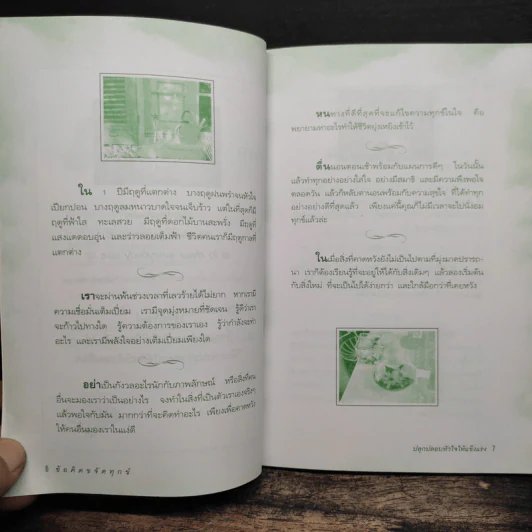 ใน 1 ปีมีฤดูที่แตกต่าง บางฤดูฝนพรำจนหัวใจ
เปียกปอน บางฤดูลมหนาวบาดใจจนเจ็บร้าว แต่ในที่สุดก็มี
ฤดูที่ฟ้าใส ทะเลสวย มีฤดูที่ดอกไม้บานสะพรั่ง มีฤดูที่
แสงแดดอบอุ่น และว่าวลอยเต็มฟ้า ชีวิตคนเราก็มีฤดูกาลที่
แตกต่าง
เราจะผ่านพ้นช่วงเวลาที่เลวร้ายได้ไม่ยาก หากเรามี
ความเชื่อมั่นเต็มเปี่ยม เรามีจุดมุ่งหมายที่ชัดเจน รู้ดีว่าเรา
จะก้าวไปทางใด รู้ความต้องการของเราเอง รู้ว่ากำลังจะทำ
อะไร และเรามีพลังใจอย่างเต็มเปี่ยมเพียงใด
อย่าเป็นกังวลอะไรนักกับภาพลักษณ์ หรือสิ่งที่คน
อื่นจะมองเราว่าเป็นอย่างไร จงทำในสิ่งที่เป็นตัวเราเองจริงๆ
แล้วพอใจกับมัน มากกว่าที่จะคิดทำอะไร เพียงเพื่อคาดหวัง
ให้คนอื่นมองเราในแง่ดี
6 ข้อคิดขจัดทุกข์
หนทางที่ดีที่สุดที่จะแก้ไขความทุกข์ในใจ คือ
พยายามหาอะไรทำให้ชีวิตยุ่งเหยิงเข้าไว้
ตื่นนอนตอนเช้าพร้อมกับแผนการดีๆ ในวันนั้น
แล้วทำทุกอย่างอย่างใส่ใจ อย่างมีสมาธิ และมีความพึงพอใจ
ตลอดวัน แล้วก็หลับตานอนพร้อมกับความสุขใจ ที่ได้ทำทุก
อย่างอย่างดีที่สุดแล้ว เพียงแค่นี้คุณก็ไม่มีเวลาจะไปนั่งอม
ทุกข์แล้วล่ะ
ในเมื่อสิ่งที่คาดหวังยังไม่เป็นไปตามที่มุ่งมาดปรารถ-
นา เราก็ต้องเรียนรู้ที่จะอยู่ให้ได้กับสิ่งเดิมๆ แล้วลองเริ่มต้น
กับสิ่งใหม่ ที่จะเป็นไปได้ง่ายกว่า และใกล้มือกว่าที่เคยหวัง
ปลุกปลอบหัวใจให้แข็งแรง 7